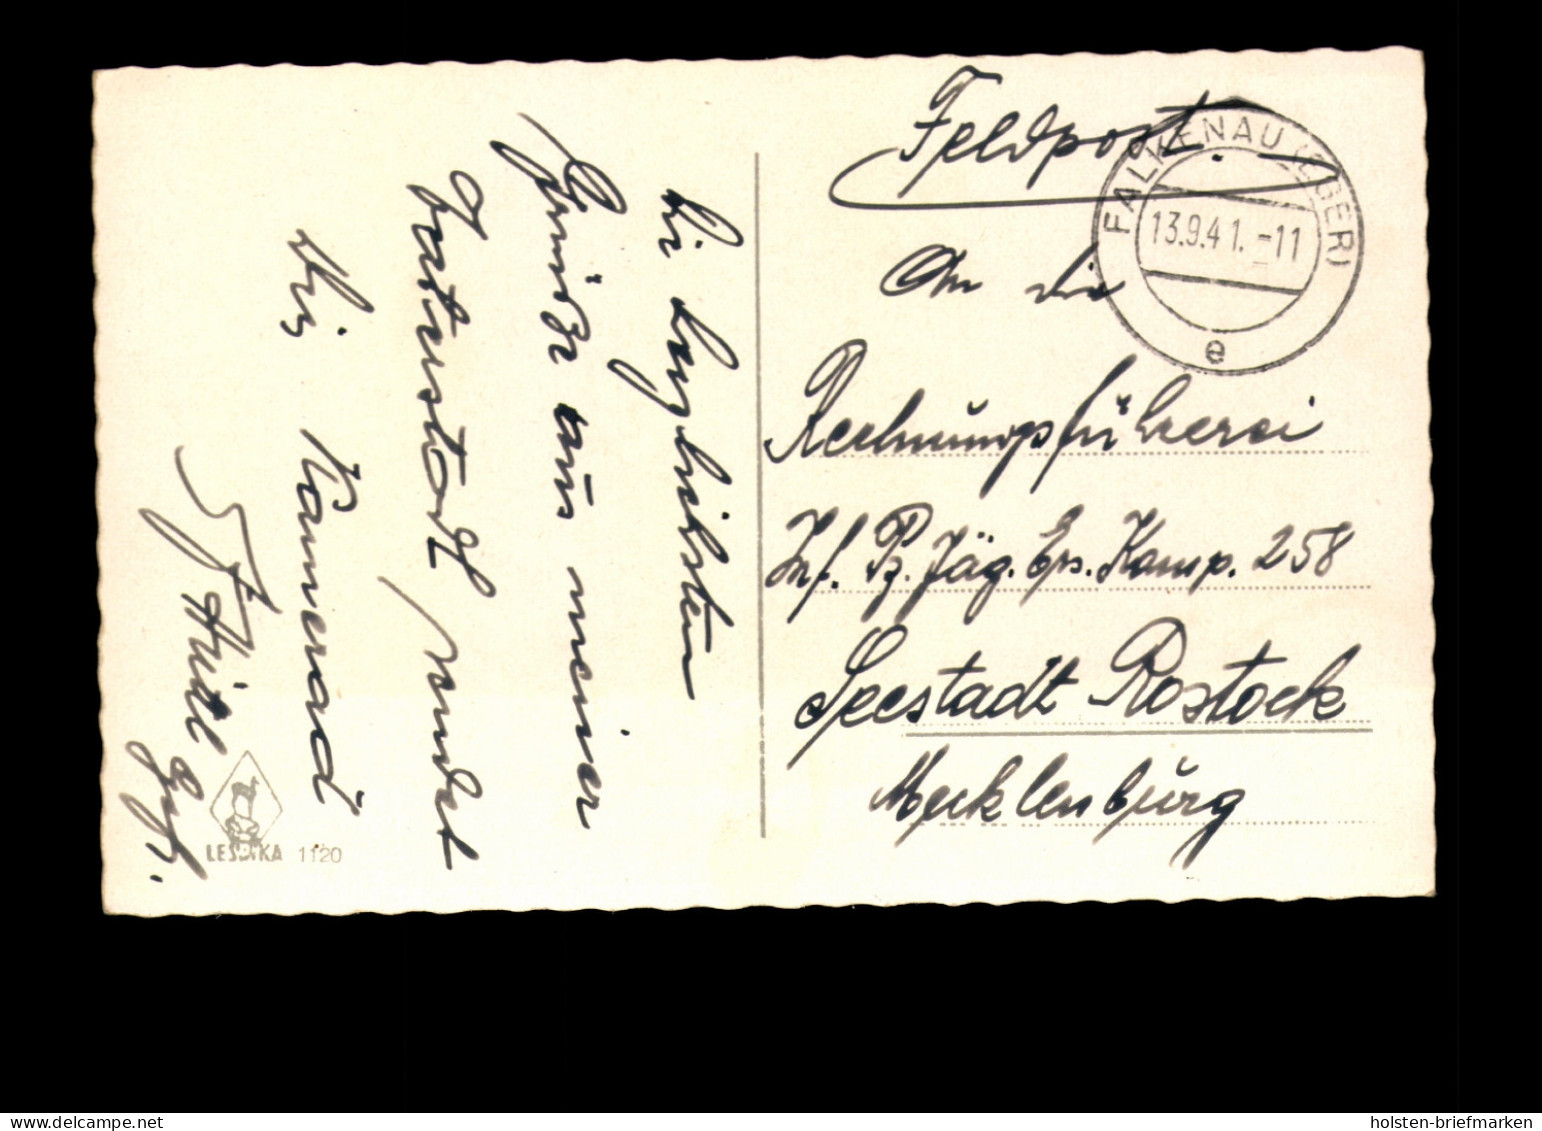 Feldpost.
FALKENAU (EGER)
13.9.41.-11
e
An die
Rechnungsführerei
Inf. Pz. Jäg. Ers. Komp. 258
Seestadt Rostock
Mecklenburg
Die herzlichsten
Grüße aus meiner
Vaterstadt sendet
Ihr Kamerad
Hüttl
Gefr.
LESDIKA 1120
www.delcampe.net
holsten-briefmarken